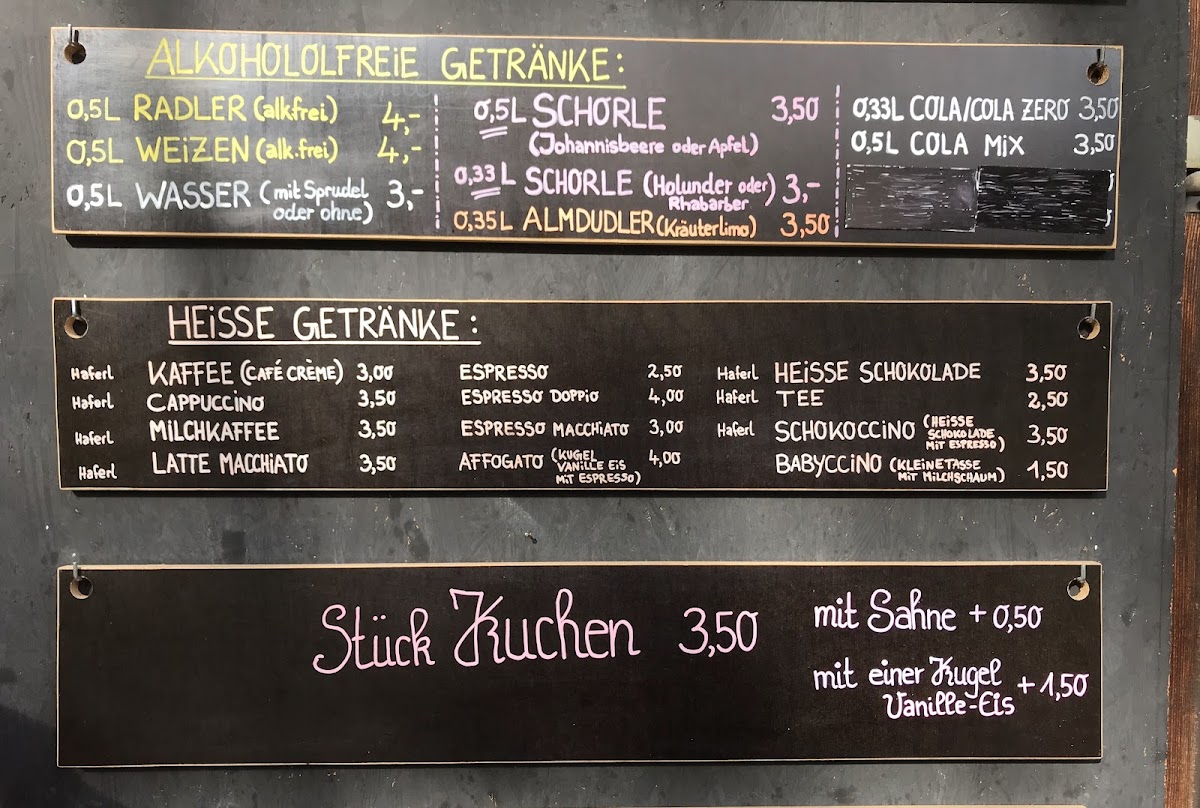 ALKOHOLOLFREIE GETRÄNKE:
0,5L RADLER (alk.frei) 4,-
0,5L WEIZEN (alk.frei) 4,-
0,5L WASSER (mit Sprudel
oder ohne) 3,-
0,5L SCHORLE 3,50
(Johannisbeere oder Apfel)
0,33L SCHORLE (Holunder oder
Rhabarber) 3,-
0,35L ALMDUDLER (Kräuterlimo) 3,50
0,33L COLA/COLA ZERO 3,50
0,5L COLA MIX 3,50
HEISSE GETRÄNKE:
Haferl KAFFEE (CAFÉ CRÈME) 3,00
Haferl CAPPUCCINO 3,50
Haferl MILCHKAFFEE 3,50
Haferl LATTE MACCHIATO 3,50
ESPRESSO 2,50
ESPRESSO DOPPIO 4,00
ESPRESSO MACCHIATO 3,00
AFFOGATO (KUGEL
VANILLE EIS
MIT ESPRESSO) 4,00
Haferl HEISSE SCHOKOLADE 3,50
Haferl TEE 2,50
Haferl SCHOKOCCINO (HEISSE
SCHOKOLADE
MIT ESPRESSO) 3,50
BABYCCINO (KLEINE TASSE
MIT MILCHSCHAUM) 1,50
Stück Kuchen 3,50
mit Sahne + 0,50
mit einer Kugel
Vanille-Eis + 1,50